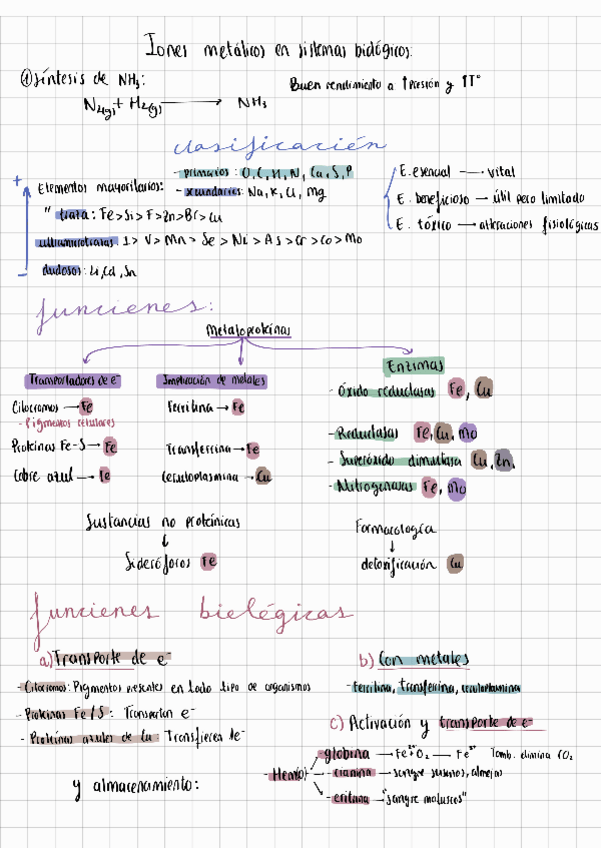 Iones metálicos en sistemas biológicos:
① Síntesis de NH₃:
Buen rendimiento a ↑Presión y ↑T°
N₂(g) + H₂(g) → NH₃
clasificación
+ Elementos mayoritarios: - primarios: O, C, H, N, Ca, S, P
- secundarios: Na, K, Cl, Mg
" traza: Fe > Si > F > Zn > Br > Cu
ultramicrotrazas: I > V > Mn > Se > Ni > As > Cr > Co > Mo
- dudosos: Li, Cd, Sn
E. esencial → vital
E. beneficioso → útil pero limitado
E. tóxico → alteraciones fisiológicas
funciones:
Metaloproteínas
Transportadores de e⁻
Citocromos → Fe
- Pigmentos celulares
Proteínas Fe-S → Fe
Cobre azul → Fe
Implicación de metales
Ferritina → Fe
Transferrina → Fe
Ceruloplasmina → Cu
Enzimas
- Óxido reductasas Fe, Cu
- Reductasas Fe, Cu, Mo
- Superóxido dimutasa Cu, Zn.
- Nitrogenasas Fe, Mo
Sustancias no proteínicas
↓
Sideróforos Fe
Farmacología
↓
detoxificación Cu
funciones biológicas
a) Transporte de e⁻
- Citocromos: Pigmentos presentes en todo tipo de organismos
- Proteínas Fe/S: Transportan e⁻
- Proteínas azules de Cu: Transfieren 1e⁻
y almacenamiento:
b) Con metales
- ferritina, transferrina, ceruloplasmina
c) Activación y transporte de e⁻
- Hemo
globina → Fe²⁺O₂ — Fe²⁺ Tamb. elimina CO₂
cianina → sangre
eritrina → "sangre moluscos"